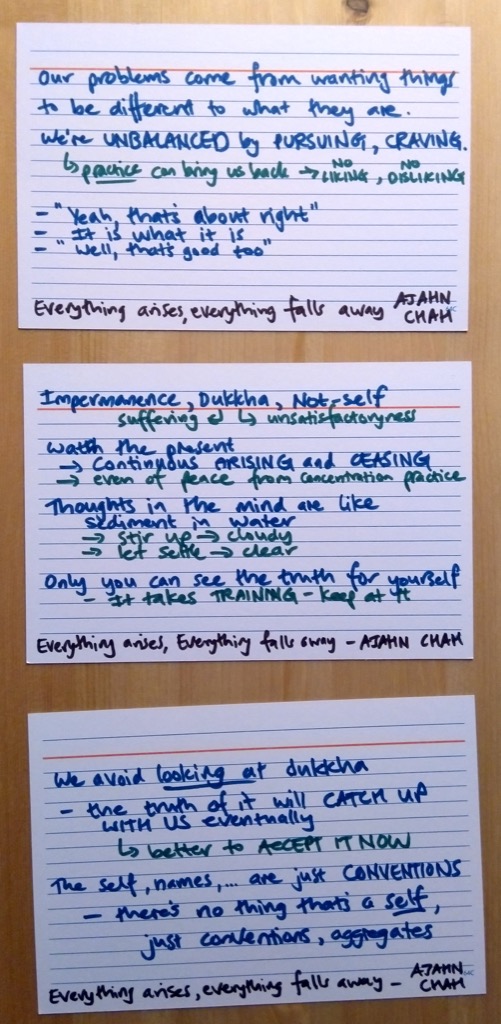 Our problems come from wanting things
to be different to what they are.
We're UNBALANCED by PURSUING, CRAVING.
↳ practice can bring us back → NO LIKING, NO DISLIKING
- "Yeah, that's about right"
- It is what it is
- "Well, that's good too"
Everything arises, everything falls away AJAHN CHAH
Impermanence, Dukkha, Not-self
suffering ↲ ↳ unsatisfactoryness
Watch the present
→ Continuous ARISING and CEASING
→ even of peace from concentration practice
Thoughts in the mind are like
sediment in water
→ stir up → cloudy
→ let settle → clear
Only you can see the truth for yourself
- It takes TRAINING - keep at it
Everything arises, Everything falls away - AJAHN CHAH
We avoid looking at dukkha
- the truth of it will CATCH UP
WITH US eventually
↳ better to ACCEPT IT NOW
The self, names, ... are just CONVENTIONS
- there's no thing that's a self,
just conventions, aggregates
Everything arises, everything falls away - AJAHN CHAH